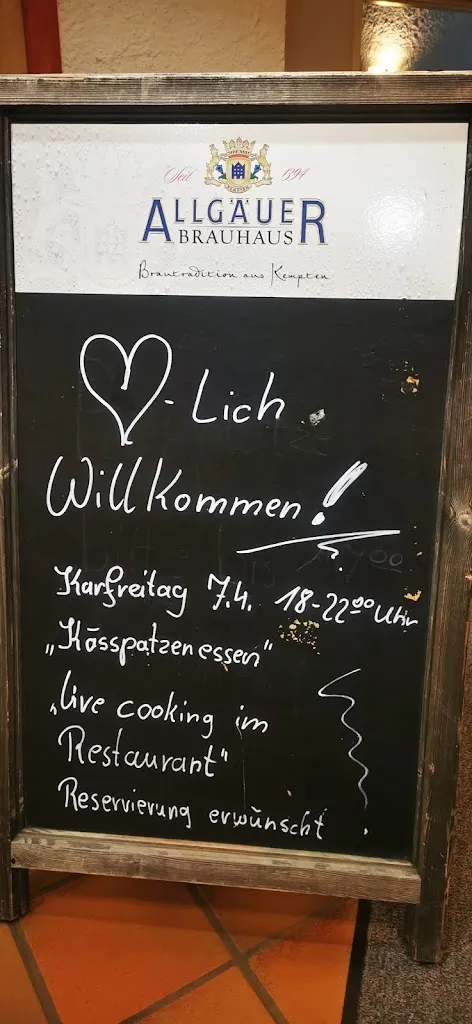 Seit 1394
ALLGÄUER
BRAUHAUS
Brautradition aus Kempten
-Lich
Willkommen!
Karfreitag 7.4. 18-22⁰⁰ Uhr
„Kässpatzenessen"
„live cooking im
Restaurant"
Reservierung erwünscht